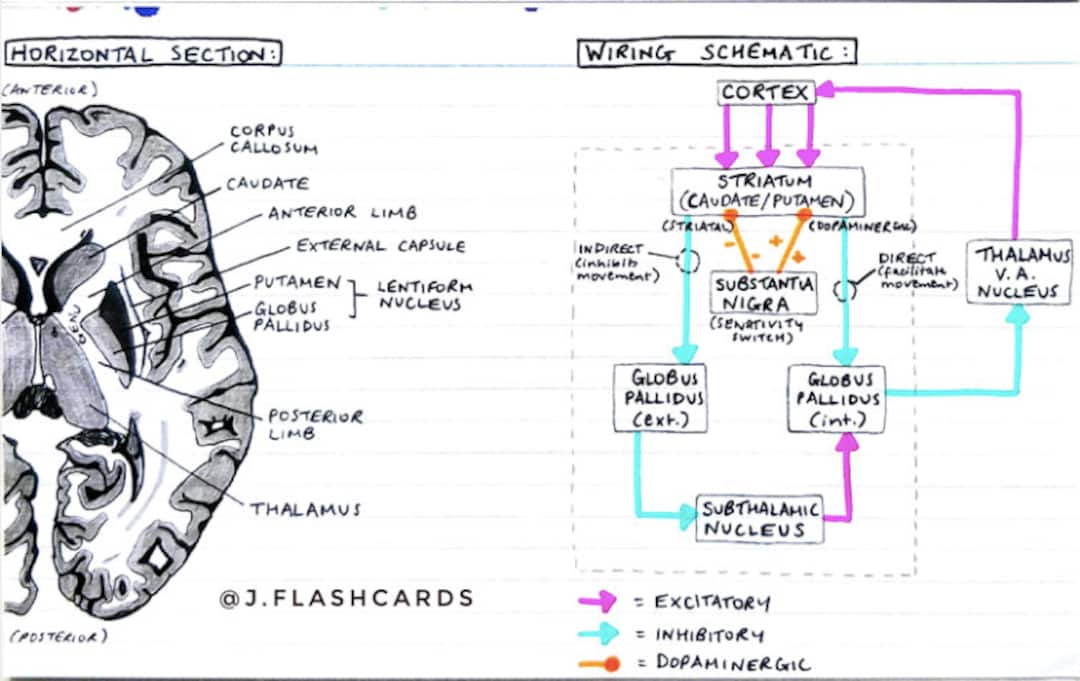 HORIZONTAL SECTION:
(ANTERIOR)
CORPUS
CALLOSUM
CAUDATE
ANTERIOR LIMB
EXTERNAL CAPSULE
PUTAMEN
GLOBUS
PALLIDUS
LENTIFORM
NUCLEUS
GENU
POSTERIOR
LIMB
THALAMUS
(POSTERIOR)
@J.FLASHCARDS
WIRING SCHEMATIC:
CORTEX
STRIATUM
(CAUDATE/PUTAMEN)
(STRIATAL)
(DOPAMINERGIC)
INDIRECT
(inhibits
movement)
- + +
DIRECT
(facilitate
movement)
SUBSTANTIA
NIGRA
(SENATIVITY
SWITCH)
THALAMUS
V.A.
NUCLEUS
GLOBUS
PALLIDUS
(ext.)
GLOBUS
PALLIDUS
(int.)
SUBTHALAMIC
NUCLEUS
= EXCITATORY
= INHIBITORY
= DOPAMINERGIC